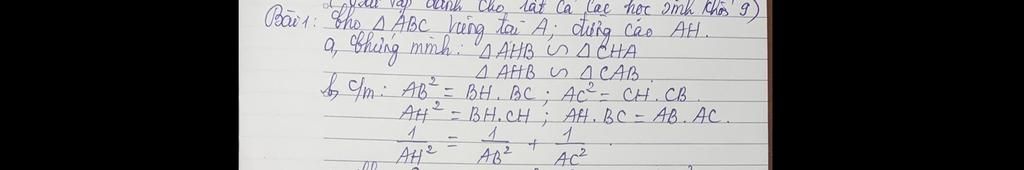 dành cho tất cả các học sinh khối 9)
Bài 1: Cho △ ABC vuông tại A; đường cao AH.
a, Chứng minh: △ AHB ∽ △ CHA
△ AHB ∽ △ CAB.
b, C/m: AB² = BH.BC; AC² = CH.CB.
AH² = BH.CH; AH.BC = AB.AC.
1/AH² = 1/AB² + 1/AC².